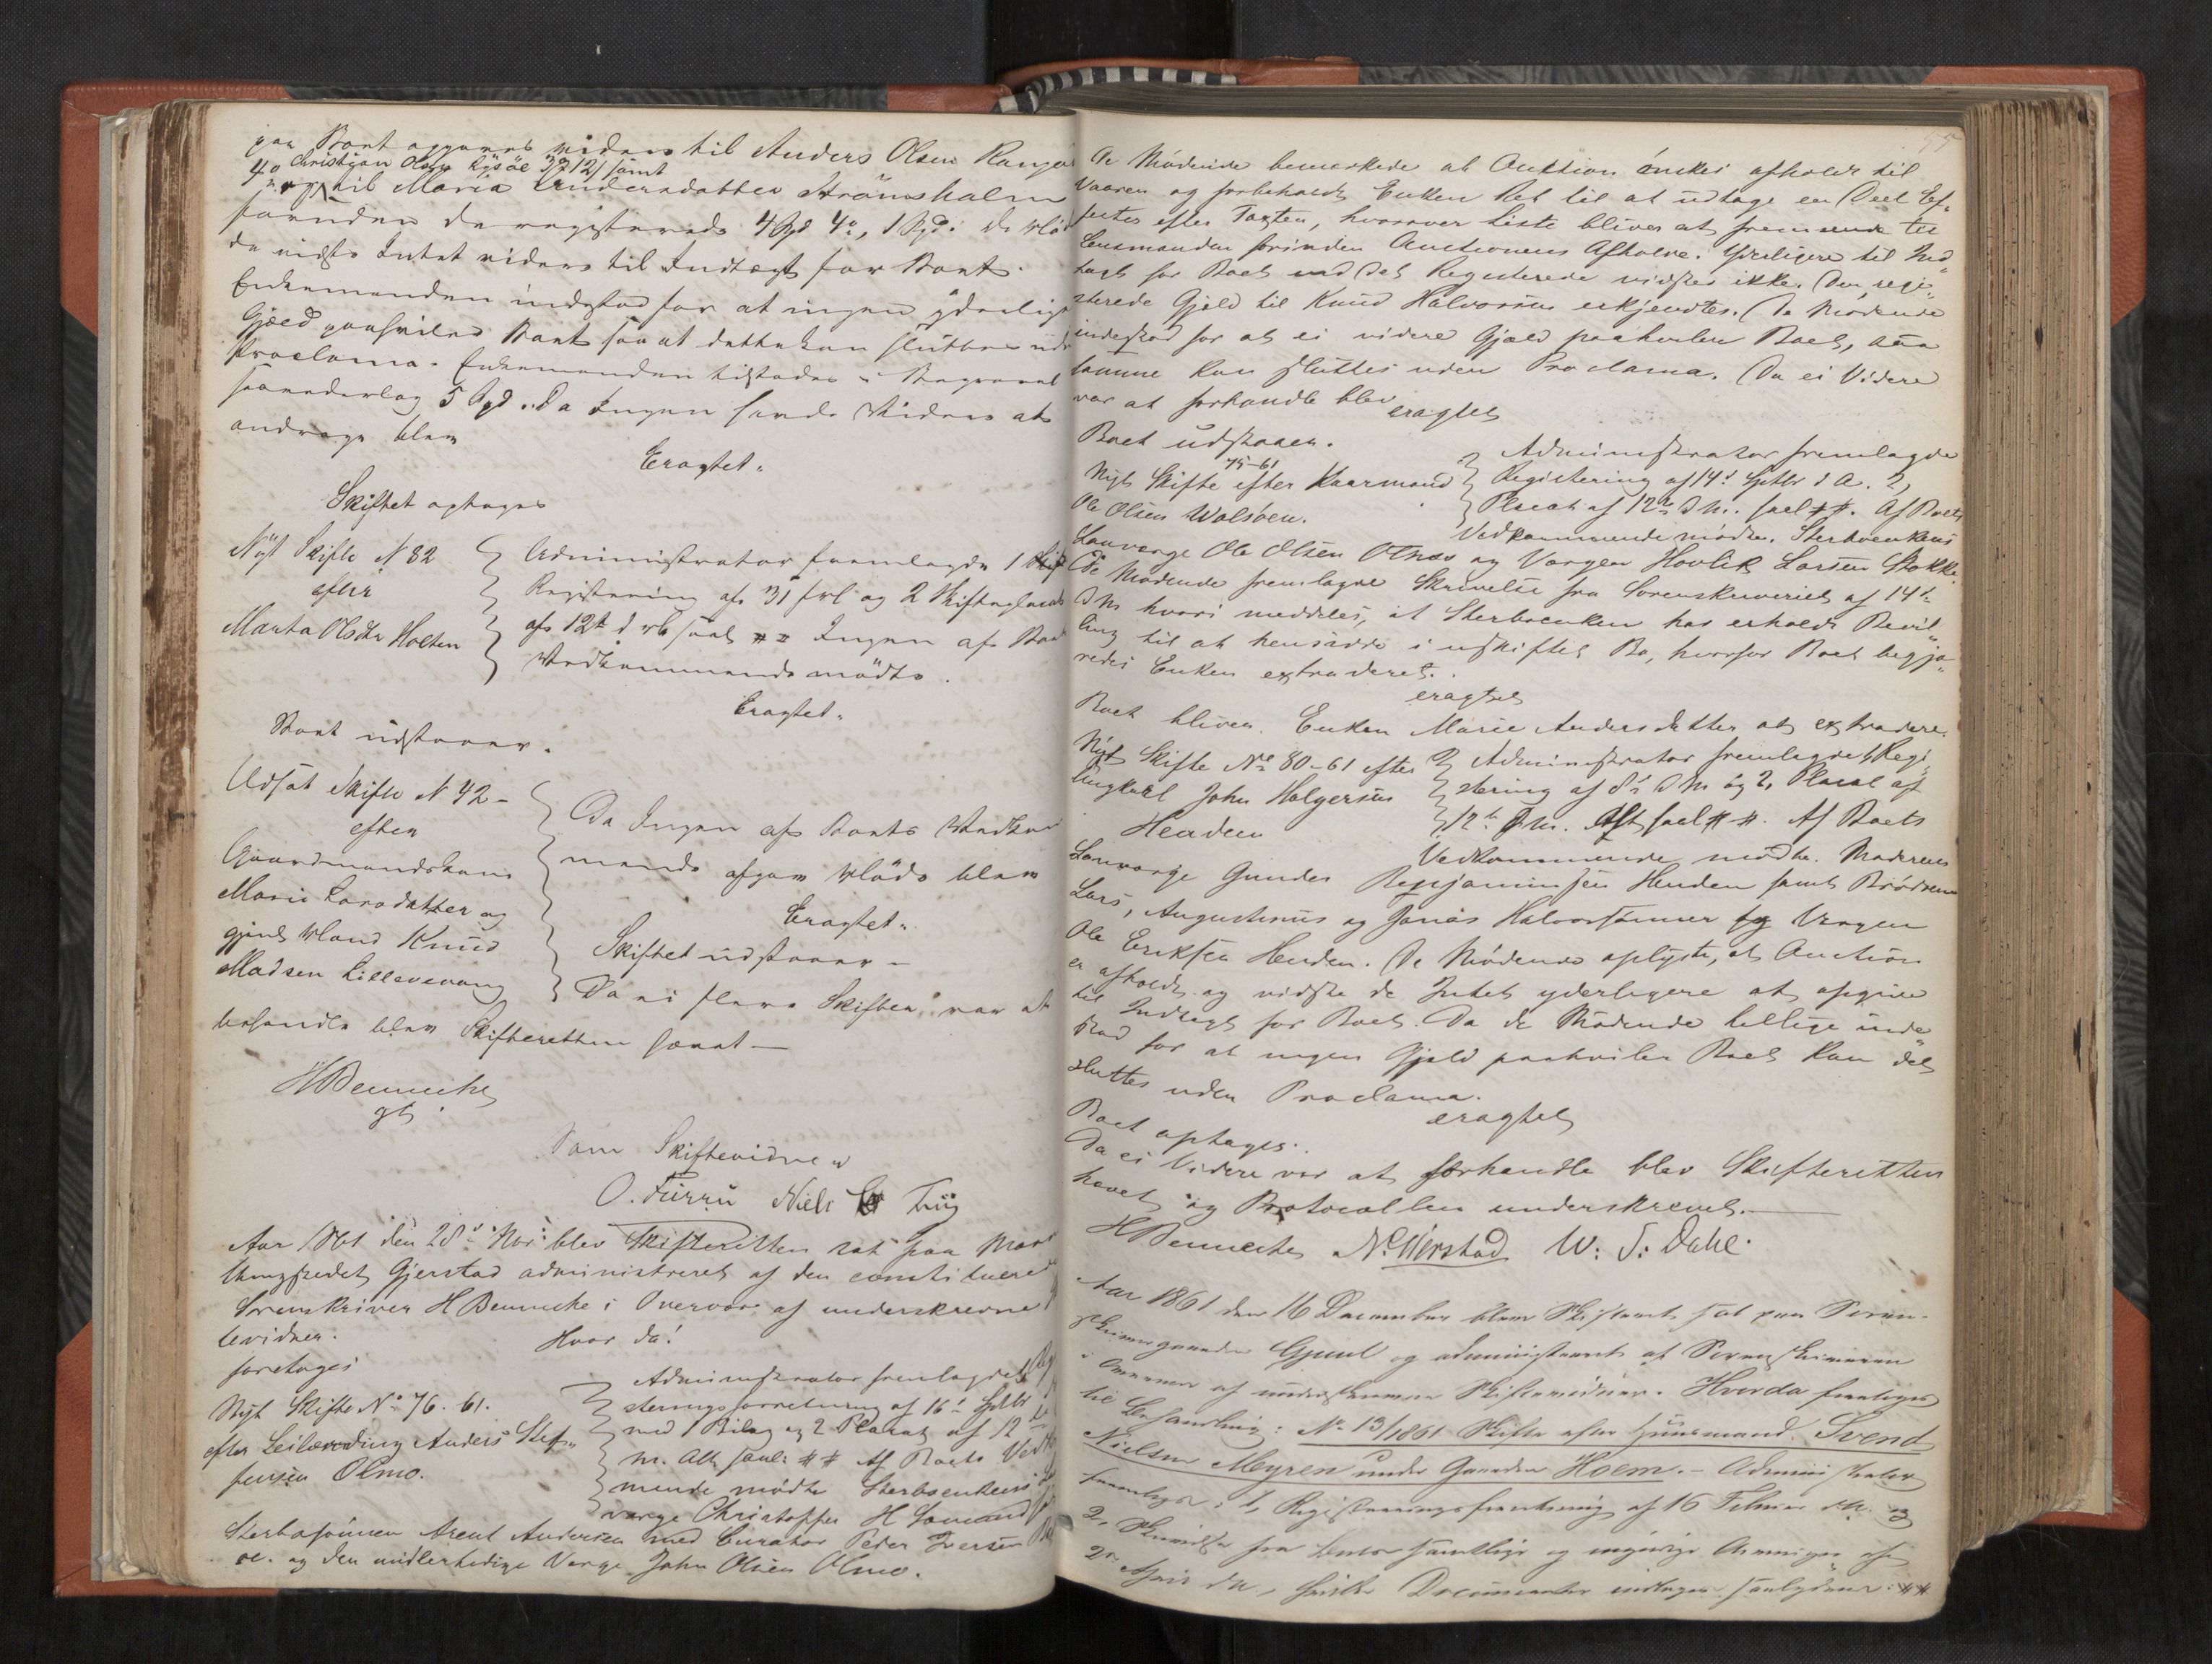 paa Boet opgaves videre til Anders Olsen
Christian Olsen
4 og til Maria Andersdatter Strömsholm
foruden de registerede 4 Spd 4, 1 Spd.
de vidste Intet videre til Indtægt for Boet.
Enkemanden indestod for at ingen yderlige
Gjæld paahviler Boet saa at dette kan sluttes uden
Proclama. Enkemanden tilstodes i Begravel
5 Spd. Da Ingen havde Videre at
andrage blev
Eragtet.
Skiftet optages
Nÿt Skifte N 82
efter
Marta Olsdtr Holten
Administrator fremlagde 1
Registrering af 31 og 2 Skifteplacat
af 12t ## Ingen af Boets
Vedkommende mödte.
Eragtet.
Boet udstaaer.
Udsat Skifte N 42 -
efter
Gaardmandskone
Marie Larsdatter og
Mand Knud
Madsen Lillevevang
Da Ingen af Boets Vedkom
mende afgav Möde blev
Eragtet.
Skiftet udstaaer -
Da ei flere Skifter var at
behandle blev Skifteretten hævet —
H Bennecke
Som Skiftevidner
O. Furru Niels
Aar 1861 den 28de Nov: blev Skifteretten sat paa
Thingstedet Gjerstad administreret af den constituerede
Sorenskriver H Bennecke i Overvær af underskrevne
levidner.
Hvor da!
foretoges
Nyt Skifte No 76. 61.
efter Leilænding Anders Stef-
fensen Olmo.
Administrator fremlagde 1 Reg
streringsforretning af 16de Septbr
med 1 Bilag og 2 Placat af 12te
m. Alt saal. ## Af Boets Vedk
mende mödte Sterboenkens
værge Christopher H
Sterbosönnen Arent Andersen med Curator Peder Iversen
og den midlertidige Værge John Olsen Olmo.
De Mödende bemærkede at Auction önskes afholdt til
Vaaren og forbeholdt Enken Ret til at udtage en Deel Ef-
fecter efter Taxten, hvorover Liste bliver at fremsende til
Lensmanden forinden Auctionens Afholde. Yderligere til Ind
tægt for Boet end det Registerede vidstes ikke. Den regi-
sterede Gjeld til Knud Halvorsen erkjendtes. De Mödende
indestod for at ei videre Gjæld paahviler Boet, saa
samme kan sluttes uden Proclama. Da ei Videre
var at forhandle blev
eragtet
Boet udstaaer.
75-61
Nyt Skifte efter Kaarmand
Ole Olsen Wolsöen.
Administrator fremlagde
Registering af 14de Septbr d A. 2,
Placat af 12te d M. saal ##. Af Boets
Vedkommende mödte. Sterboenkens
Lauværge Ole Olsen og Værgen Hovlik Larsen Stokke
De Mödende fremlagde Skrivelse fra Sorenskriveriet af 14de
d M hvori meddeles, at Sterboenken har erholdt Bevil-
ling til at hensidde i uskiftet Bo, hvorfor Boet begjæ-
redes Enken extraderet.
eragtet
Boet bliver Enken Marie Andersdatter at extradere.
Nÿt Skifte No 80-61 efter
Ungkarl John Halgersen
Henden
Administrator fremlagde 1, Regi-
strering af 8de d M og 2, Placat af
12te d M. Alt saal ##. Af Boets
Vedkommende mödte. Moderens
Lauværge Gunder Benjaminsen Henden samt Brödrene
Lars, Augustinus og Jonas Halvorsönner og Værgen
Ole Eriksen Henden. De Mödende oplyste, at Auction
er afholdt og vidste de Intet yderligere at opgive
til Indtægt for Boet. Da de Mödende tillige inde
stod for at ingen Gjeld paahviler Boet kan det
sluttes uden Proclama.
eragtet
Boet optages.
Da ei Videre var at forhandle blev Skifteretten
hævet og Protocollen underskrevet. —
H Bennecke N. Vierstad W: S: Dahl.
Aar 1861 den 16 December blev Skifteret sat paa Soren-
skrivergaarden og administreret af Sorenskriveren
i Overvær af underskrevne Skiftevidner. Hvorda foretoges
til Behandling: No 13/1861 Skifte efter Huusmand Svend
Nielsen Myren under Gaarden Hoem. - Administrator
fremlagde: 1, Registreringsforretning af 16 Februar d.A.
2, Skrivelse fra samtlige og myndige Arvinger af
2den April d A, hvilke Documenter indtages saalydende: ##